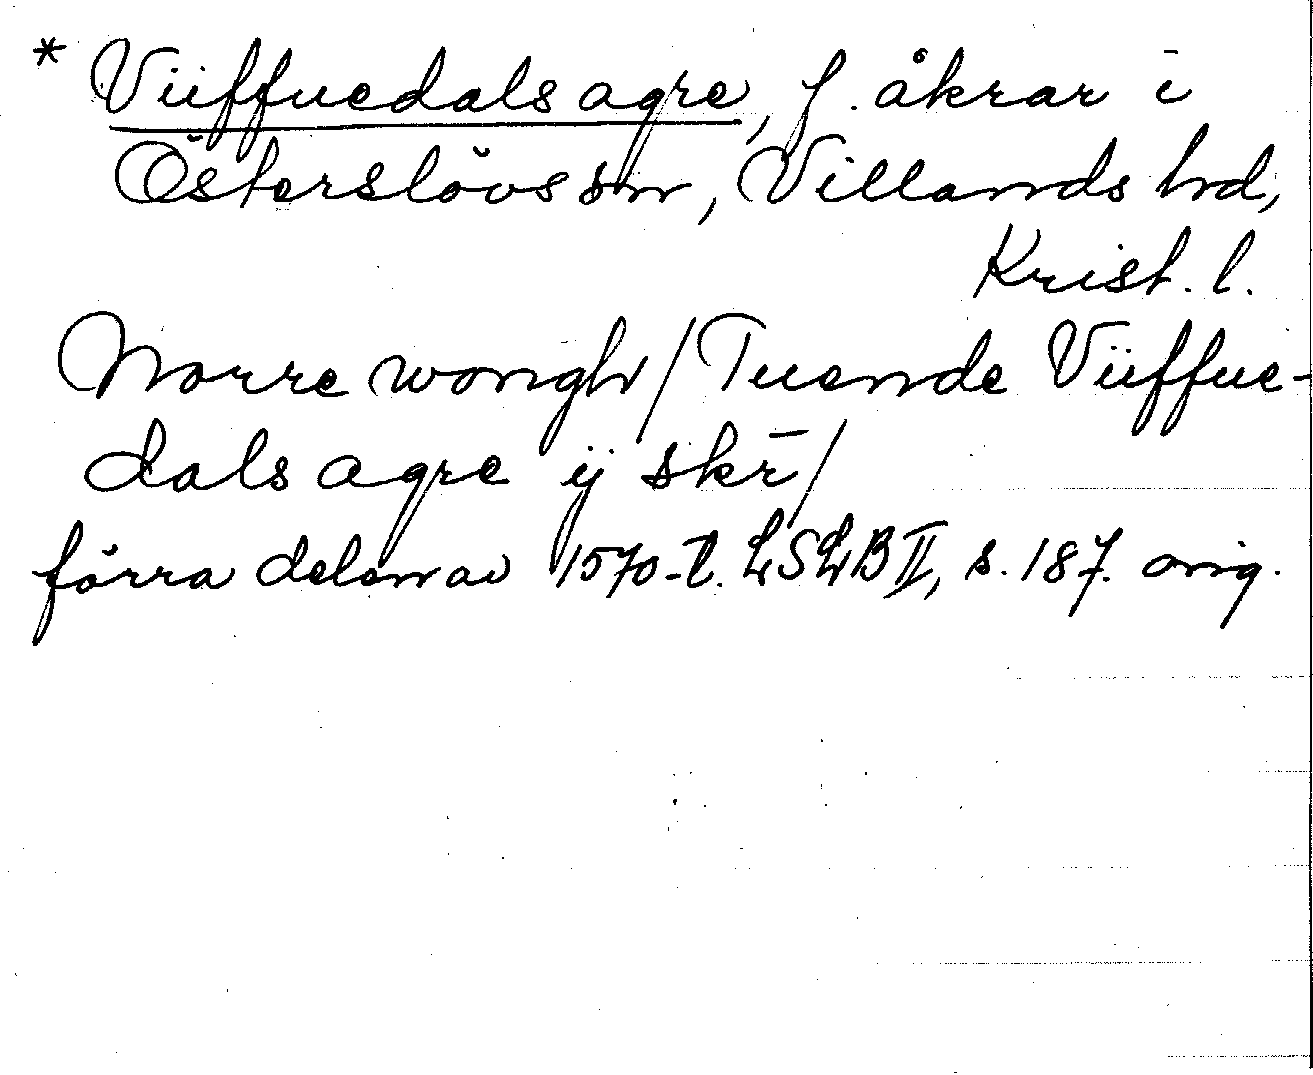 * Viiffuedals agre, f. åkrar i
Österslövs sn, Villands hd,
Krist. l.
Norre wongh/Tuende Viiffue-
dals agre ij skr̄/
förra delen av 1570-t. LSLB II, s. 187. orig.